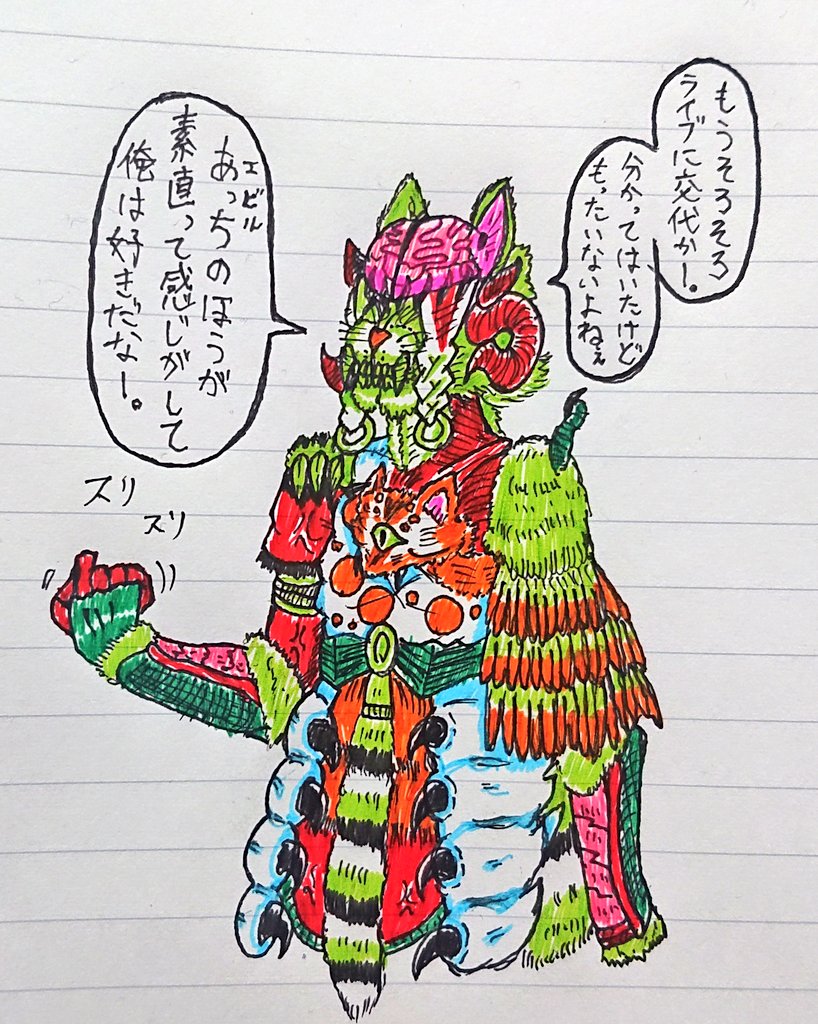 もうそろそろ
ライブに交代かー。
分かってはいたけど
もったいないよねぇ
エビル
あっちのほうが
素直って感じがして
俺は好きだなー。
ズリ
ズリ